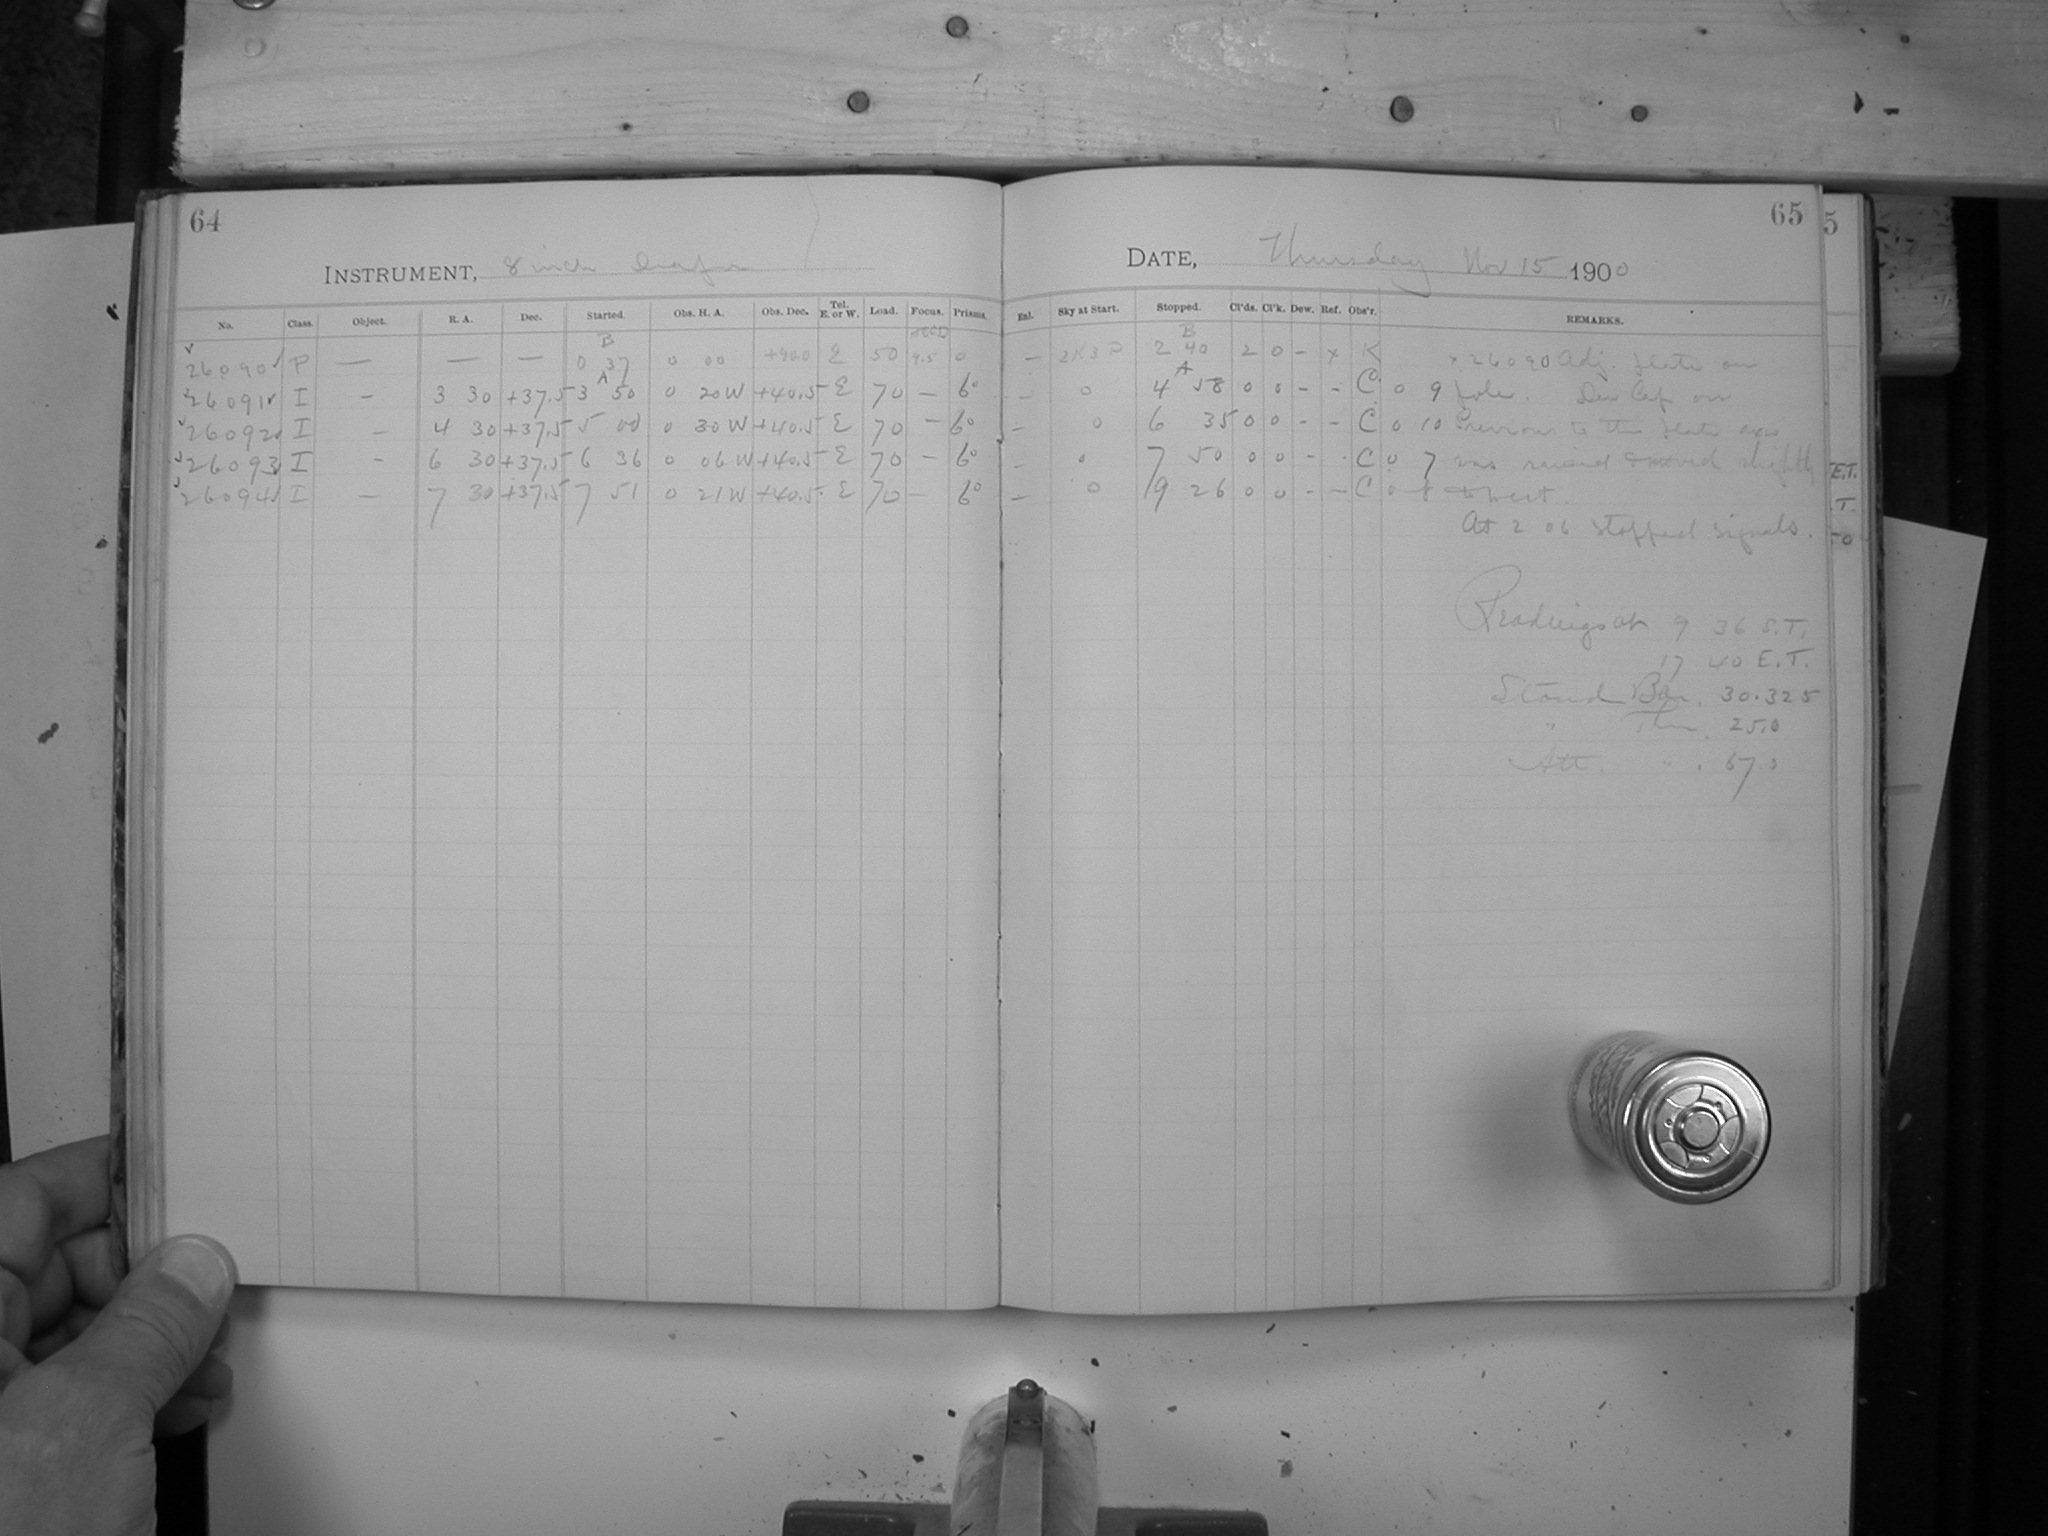 64
INSTRUMENT, 8 inch Draper
No. Class. Object. R. A. Dec. Started. Obs. H. A. Obs. Dec. Tel. E. or W. Load. Focus. Prisms.
26090 P — — — B 0 37 0 00 +90.0 E 50 9.5 0
26091 I — 3 30 +37.5 A 3 50 0 20 W +40.5 E 70 — 6°
26092 I — 4 30 +37.5 5 00 0 30 W +40.5 E 70 — 6°
26093 I — 6 30 +37.5 6 36 0 06 W +40.5 E 70 — 6°
26094 I — 7 30 +37.5 7 51 0 21 W +40.5 E 70 — 6°
65
DATE, Thursday Nov 15 1900
Enl. Sky at Start. Stopped. Cl'ds. Cl'k. Dew. Ref. Obs'r. REMARKS.
— 2K3P B 2 40 2 0 - x K x 26090 Adj. plate on
— 0 A 4 58 0 0 - - C 0 9 pole. Dew Cap on
— 0 6 35 0 0 - - C 0 10 Previous to this plate axis
— 0 7 50 0 0 - - C 0 7 was raised & moved slightly
— 0 9 26 0 0 - - C 0 to west.
At 2 06 stopped signals.
Readings at 9 36 S.T.
17 40 E.T.
Stand Bar. 30.325
" Ther. 25.0
Att. " . 67.0
5
E.T.
.T.